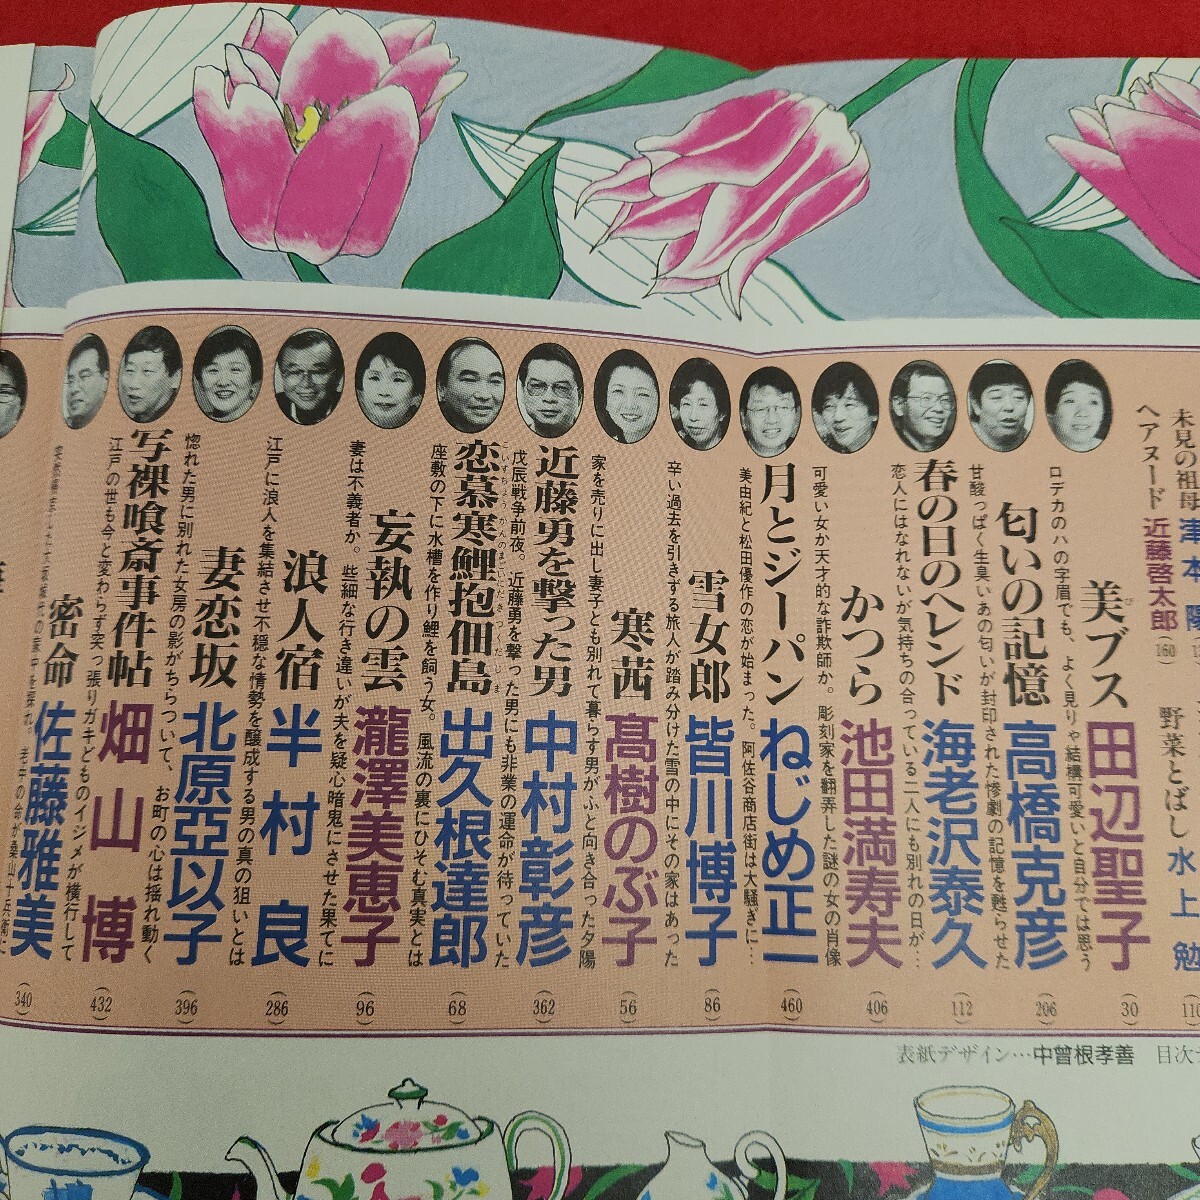 未見の祖母 津本陽
ヘアヌード 近藤啓太郎 (160)
野菜とばし 水上勉 (110
美ブス
び
ロデカのハの字眉でも、よく見りゃ結構可愛いと自分では思う
田辺聖子 (30)
匂いの記憶
甘酸っぱく生臭いあの匂いが封印された惨劇の記憶を甦らせた
高橋克彦 (206)
春の日のヘレンド
恋人にはなれないが気持ちの合っている二人にも別れの日が…
海老沢泰久 (112)
かつら
可愛い女か天才的な詐欺師か。彫刻家を翻弄した謎の女の肖像
池田満寿夫 (406)
月とジーパン
美由紀と松田優作の恋が始まった。阿佐谷商店街は大騒ぎに…
ねじめ正一 (460)
雪女郎
辛い過去を引きずる旅人が踏み分けた雪の中にその家はあった
皆川博子 (86)
寒茜
家を売りに出し妻子とも別れて暮らす男がふと向き合った夕陽
髙樹のぶ子 (56)
近藤勇を撃った男
戊辰戦争前夜。近藤勇を撃った男にも非業の運命が待っていた
中村彰彦 (362)
恋慕寒鯉抱佃島
こいすちょうかんのまいだきつくだじま
座敷の下に水槽を作り鯉を飼う女。風流の裏にひそむ真実とは
出久根達郎 (68)
妄執の雲
妻は不義者か。些細な行き違いが夫を疑心暗鬼にさせた果てに
瀧澤美恵子 (96)
浪人宿
江戸に浪人を集結させ不穏な情勢を醸成する男の真の狙いとは
半村良 (286)
妻恋坂
惚れた男に別れた女房の影がちらついて、お町の心は揺れ動く
北原亞以子 (396)
写裸喰斎事件帖
江戸の世も今と変わらず突っ張りガキどものイジメが横行して
畑山博 (432)
密命
佐藤雅美 (340)
表紙デザイン…中曽根孝善 目次